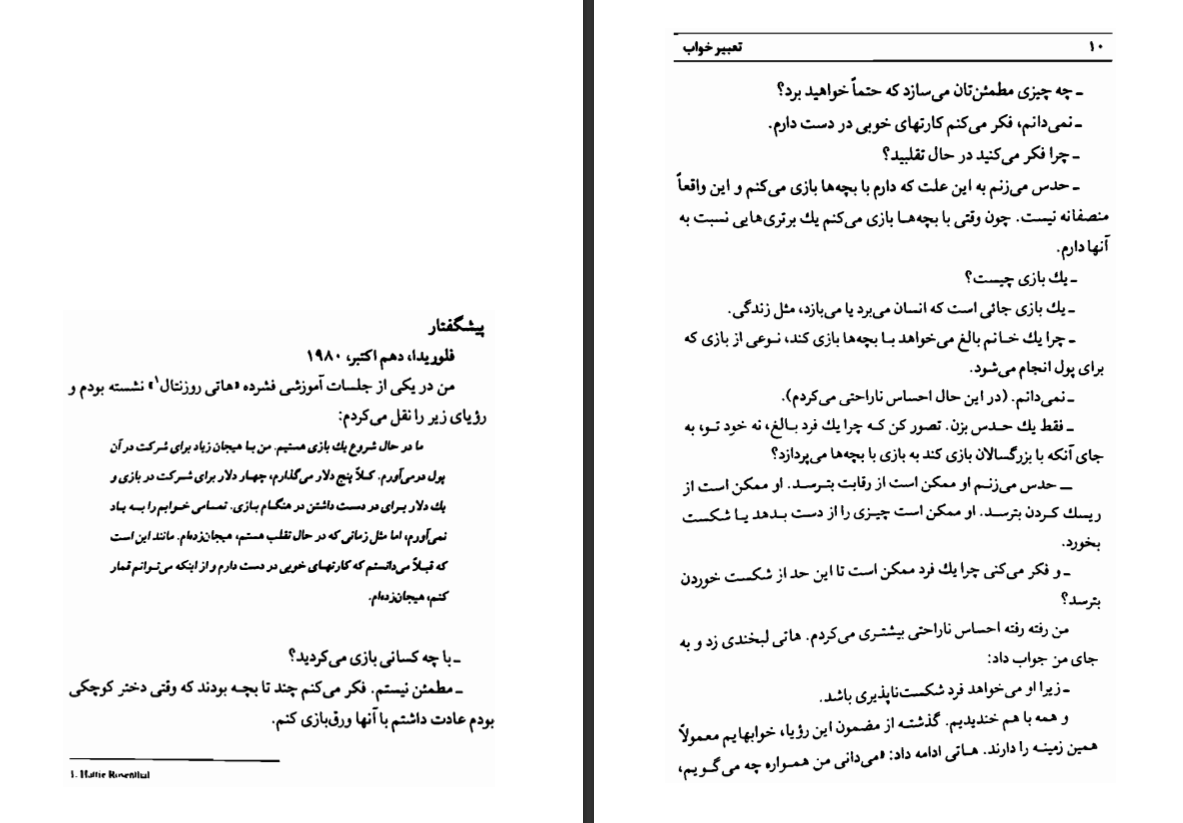 پیشگفتار
فلوریدا، دهم اکتبر، ۱۹۸۰
من در یکی از جلسات آموزشی فشرده «هاتی روزنتال۱» نشسته بودم و
رؤیای زیر را نقل می‌کردم:
ما در حال شروع یك بازی هستیم. من بـا هیجان زیاد برای شرکت در آن
پول درمی‌آورم. کـلاً پنج دلار می‌گذارم، چهـار دلار برای شـرکت در بازی و
یك دلار بـرای در دست داشتن در هنگـام بـازی. تمـامـی خـوابم را بـه یـاد
نمی‌آورم، اما مثل زمانی که در حال تقلب هستم، هیجان‌زده‌ام. مانند این است
که قبـلاً می‌دانستم که کارتهـای خوبی در دست دارم و از اینکه می‌تـوانم قمار
کنم، هیجان‌زده‌ام.
ـ با چه کسانی بازی می‌کردید؟
ـ مطمئن نیستم. فکر می‌کنم چند تا بچـه بودند که وقتی دختر کوچکی
بودم عادت داشتم با آنها ورق‌بازی کنم.
1. Hattie Rosenthal
۱۰ تعبیر خواب
ـ چه چیزی مطمئن‌تان می‌سازد که حتماً خواهید برد؟
ـ نمی‌دانم، فکر می‌کنم کارتهای خوبی در دست دارم.
ـ چرا فکر می‌کنید در حال تقلبید؟
ـ حدس می‌زنم به این علت که دارم با بچه‌ها بازی می‌کنم و این واقعاً
منصفانه نیست. چون وقتی با بچه‌هـا بازی می‌کنم یك برتری‌هایی نسبت به
آنها دارم.
ـ یك بازی چیست؟
ـ یك بازی جائی است که انسان می‌برد یا می‌بازد، مثل زندگی.
ـ چرا یك خـانم بالغ می‌خواهد بـا بچه‌ها بازی کند، نـوعی از بازی که
برای پول انجام می‌شود.
ـ نمی‌دانم. (در این حال احساس ناراحتی می‌کردم).
ـ فقط یك حـدس بزن. تصور کن کـه چرا یك فرد بـالغ، نه خود تـو، به
جای آنکه با بزرگسالان بازی کند به بازی با بچه‌ها می‌پردازد؟
ــ حدس می‌زنـم او ممکن است از رقابت بتـرسـد. او ممکن است از
ریسك کـردن بترسد. او ممکن است چیـزی را از دست بـدهد یـا شکست
بخورد.
ـ و فکر می‌کنی چرا یك فرد ممکن است تا این حد از شکست خوردن
بترسد؟
من رفته رفته احساس ناراحتی بیشتـری می‌کردم. هاتی لبخندی زد و به
جای من جواب داد:
ـ زیرا او می‌خواهد فرد شکست‌ناپذیری باشد.
و همه با هم خندیدیم. گذشتـه از مضمون این رؤیا، خوابهایم معمولاً
همین زمینـه را دارند. هـاتی ادامه داد: «می‌دانی من همـواره چه می‌گـویم،